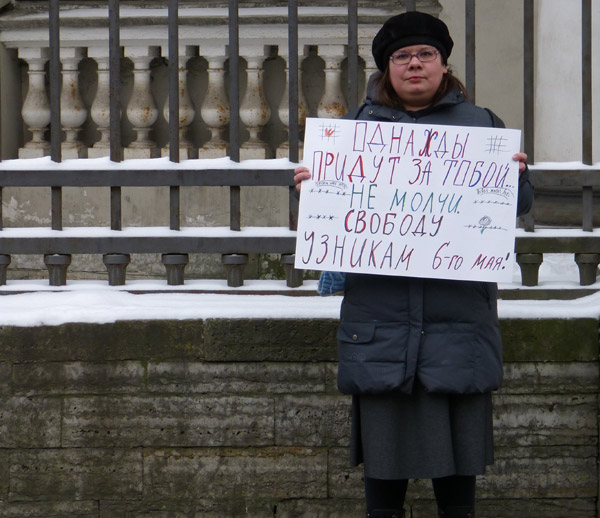 ОДНАЖДЫ
ПРИДУТ ЗА ТОБОЙ...
НЕ МОЛЧИ.
СВОБОДУ
УЗНИКАМ 6-го МАЯ!